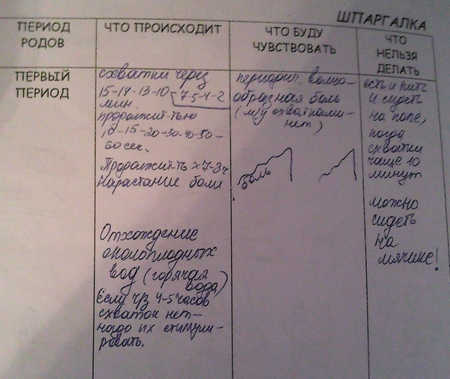 ШПАРГАЛКА
ПЕРИОД
РОДОВ
ЧТО ПРОИСХОДИТ
ЧТО БУДУ
ЧУВСТВОВАТЬ
ЧТО
НЕЛЬЗЯ
ДЕЛАТЬ
ПЕРВЫЙ
ПЕРИОД
схватки через
15-14-13-10-7-5-4-2
мин.
продолжит-тью
15-20-30-40-50-
60 сек.
Продолжит-ть
Нарастание боли
Отхождение
околоплодных
вод (горячая
вода)
Если ч/з 4-5 часов
схваток нет-
надо их стимули-
ровать.
периодич. волно-
образная боль
(м/у схватками-
нет)
боль
есть и пить
и сидеть
на попе,
когда
схватки
чаще 10
минут
можно
сидеть
на
мячике!